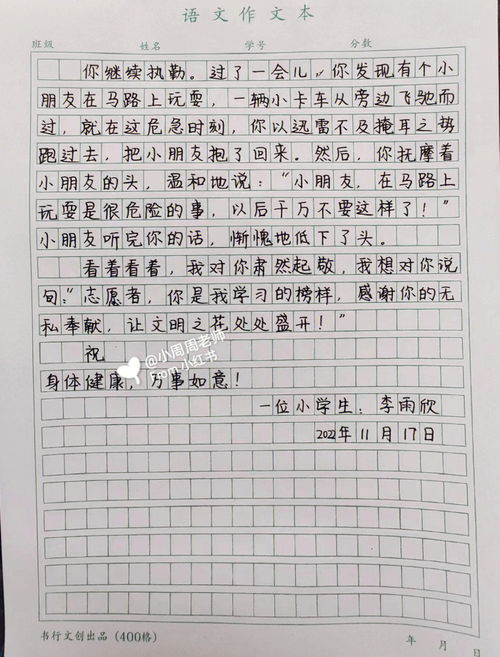 语文作文本
班级 姓名 学号 分数
你继续执勤。过了一会儿，你发现有个小
朋友在马路上玩耍，一辆小卡车从旁边飞驰而
过，就在这危急时刻，你以迅雷不及掩耳之势
跑过去，把小朋友抱了回来。然后，你抚摩着
小朋友的头，温和地说：“小朋友，在马路上
玩耍是很危险的事，以后千万不要这样了！”
小朋友听完你的话，惭愧地低下了头。
看着看着，我对你肃然起敬，我想对你说
句：“志愿者，你是我学习的榜样，感谢你的无
私奉献，让文明之花处处盛开！”
祝
@小周周老师
From 小红书
身体健康，万事如意！
一位小学生：李雨欣
2022年11月17日
书行文创出品（400格） 年 月 日